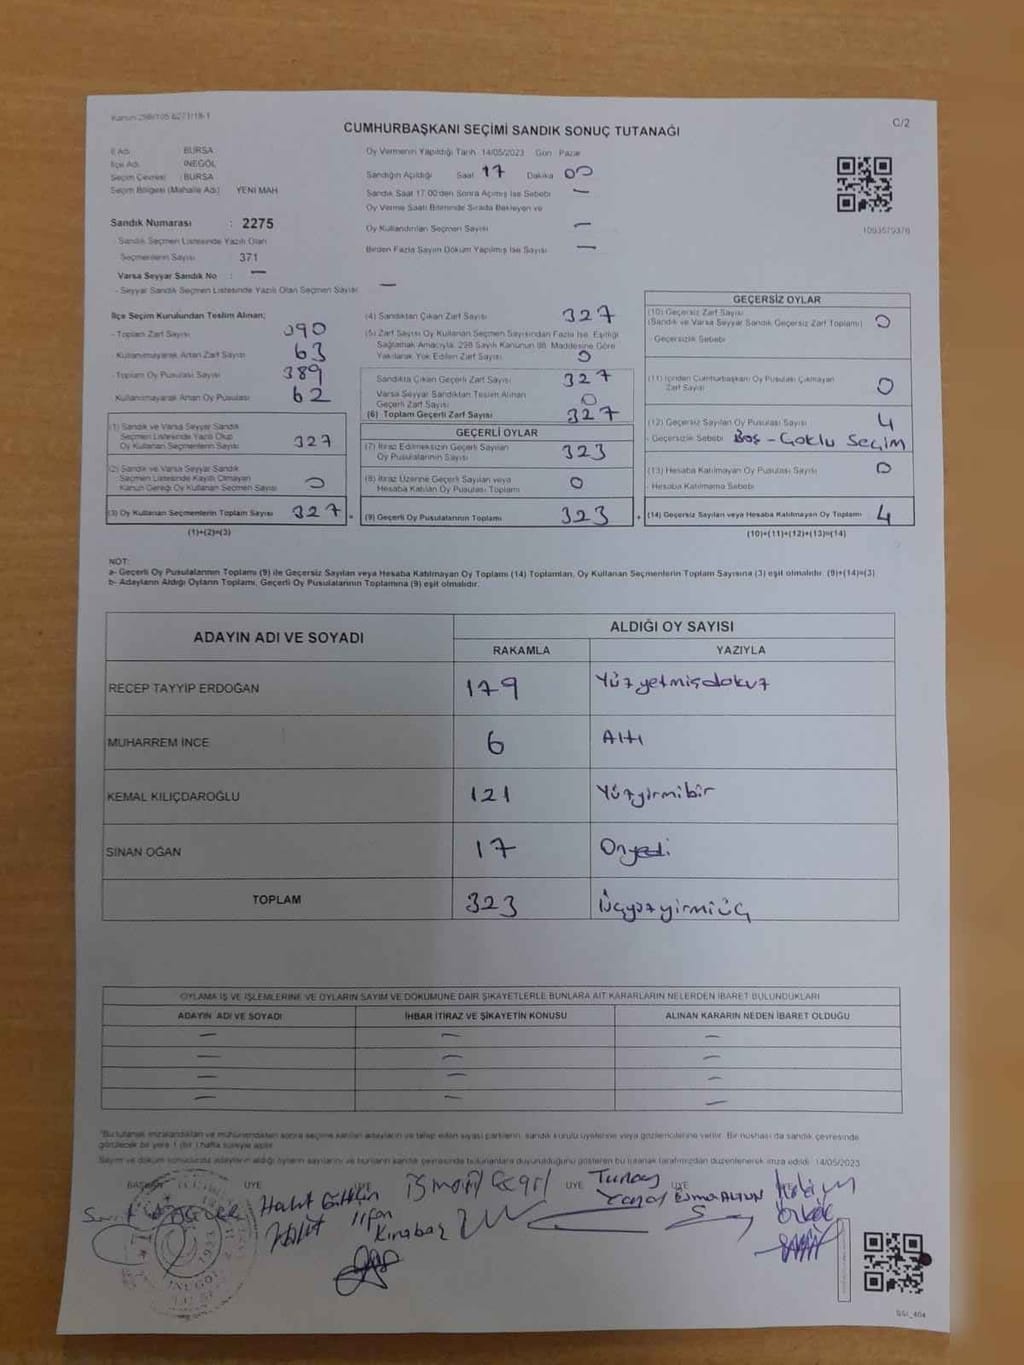 Kanun 298/105 6271/18-1
C/2
CUMHURBAŞKANI SEÇİMİ SANDIK SONUÇ TUTANAĞI
İl Adı : BURSA
İlçe Adı : İNEGÖL
Seçim Çevresi : BURSA
Seçim Bölgesi (Mahalle Adı) YENİ MAH
Sandık Numarası : 2275
- Sandık Seçmen Listesinde Yazılı Olan
Seçmenlerin Sayısı 371
Varsa Seyyar Sandık No : —
- Seyyar Sandık Seçmen Listesinde Yazılı Olan Seçmen Sayısı —
Oy Vermenin Yapıldığı Tarih 14/05/2023 Gün Pazar
Sandığın Açıldığı Saat 17 Dakika 00
Sandık Saat 17.00'den Sonra Açılmış İse Sebebi —
Oy Verme Saati Bitiminde Sırada Bekleyen ve
Oy Kullandırılan Seçmen Sayısı —
Birden Fazla Sayım Döküm Yapılmış İse Sayısı —
1093579376
İlçe Seçim Kurulundan Teslim Alınan;
- Toplam Zarf Sayısı 390
- Kullanılmayarak Artan Zarf Sayısı 63
- Toplam Oy Pusulası Sayısı 389
Kullanılmayarak Artan Oy Pusulası 62
(1) Sandık ve Varsa Seyyar Sandık
Seçmen Listesinde Yazılı Olup
Oy Kullanan Seçmenlerin Sayısı 327
(2) Sandık ve Varsa Seyyar Sandık
Seçmen Listesinde Kayıtlı Olmayan
Kanun Gereği Oy Kullanan Seçmen Sayısı 0
(3) Oy Kullanan Seçmenlerin Toplam Sayısı 327
(1)+(2)=(3)
(4) Sandıktan Çıkan Zarf Sayısı 327
(5) Zarf Sayısı Oy Kullanan Seçmen Sayısından Fazla İse, Eşitliği
Sağlamak Amacıyla, 298 Sayılı Kanunun 98. Maddesine Göre
Yakılarak Yok Edilen Zarf Sayısı 0
Sandıkta Çıkan Geçerli Zarf Sayısı 327
Varsa Seyyar Sandıktan Teslim Alınan
Geçerli Zarf Sayısı 0
(6) Toplam Geçerli Zarf Sayısı 327
GEÇERLİ OYLAR
(7) İtiraz Edilmeksizin Geçerli Sayılan
Oy Pusulalarının Sayısı 323
(8) İtiraz Üzerine Geçerli Sayılan veya
Hesaba Katılan Oy Pusulası Toplamı 0
(9) Geçerli Oy Pusulalarının Toplamı 323
+
GEÇERSİZ OYLAR
(10) Geçersiz Zarf Sayısı
(Sandık ve Varsa Seyyar Sandık Geçersiz Zarf Toplamı) 0
- Geçersizlik Sebebi
(11) İçinden Cumhurbaşkanı Oy Pusulası Çıkmayan
Zarf Sayısı 0
(12) Geçersiz Sayılan Oy Pusulası Sayısı 4
- Geçersizlik Sebebi Boş - Çoklu Seçim
(13) Hesaba Katılmayan Oy Pusulası Sayısı 0
- Hesaba Katılmama Sebebi
(14) Geçersiz Sayılan veya Hesaba Katılmayan Oy Toplamı 4
(10)+(11)+(12)+(13)=(14)
NOT:
a- Geçerli Oy Pusulalarının Toplamı (9) ile Geçersiz Sayılan veya Hesaba Katılmayan Oy Toplamı (14) Toplamları, Oy Kullanan Seçmenlerin Toplam Sayısına (3) eşit olmalıdır. (9)+(14)=(3)
b- Adayların Aldığı Oyların Toplamı, Geçerli Oy Pusulalarının Toplamına (9) eşit olmalıdır.
ADAYIN ADI VE SOYADI
ALDIĞI OY SAYISI
RAKAMLA YAZIYLA
RECEP TAYYİP ERDOĞAN 179 Yüzyetmişdokuz
MUHARREM İNCE 6 Altı
KEMAL KILIÇDAROĞLU 121 Yüzyirmibir
SİNAN OĞAN 17 Onyedi
TOPLAM 323 Üçyüzyirmiüç
OYLAMA İŞ VE İŞLEMLERİNE VE OYLARIN SAYIM VE DÖKÜMÜNE DAİR ŞİKAYETLERLE BUNLARA AİT KARARLARIN NELERDEN İBARET BULUNDUKLARI
ADAYIN ADI VE SOYADI İHBAR İTİRAZ VE ŞİKAYETİN KONUSU ALINAN KARARIN NEDEN İBARET OLDUĞU
— — —
— — —
— — —
— — —
*Bu tutanak imzalandıktan ve mühürlendikten sonra seçime katılan adayların ve talep eden siyasi partilerin, sandık kurulu üyelerine veya gözlemcilerine verilir. Bir nüshası da sandık çevresinde
görülecek bir yere 1 (bir) hafta süreyle asılır.
Sayım ve döküm sonucunda adayların aldığı oyların sayılarını ve bunların sandık çevresinde bulunanlara duyurulduğunu gösteren bu tutanak tarafımızdan düzenlenerek imza edildi. 14/05/2023
BAŞKAN ÜYE ÜYE
Halit
İrfan
Kirabaz
İsmail
Tunay
Esma ALTUN
İNEGÖL